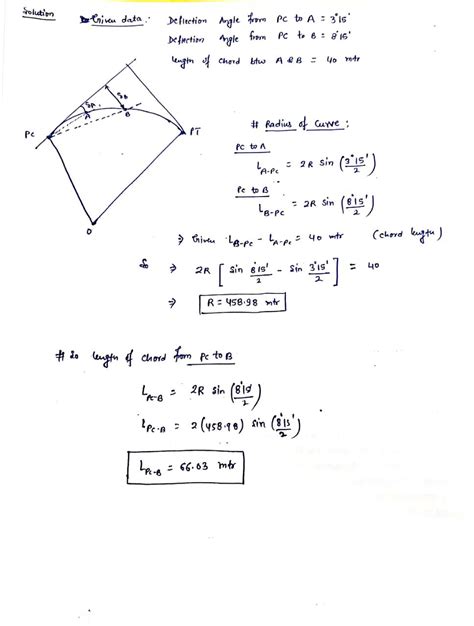 Solution
Given data: Deflection Angle from PC to A = 3°15'
Deflection Angle from PC to B = 8°15'
length of chord btw A & B = 40 mtr
δA
δB
A
B
PC
PT
O
# Radius of Curve:
PC to A
L A-PC = 2R Sin (3°15'/2)
PC to B
L B-PC = 2R Sin (8°15'/2)
⇒ Given L B-PC - L A-PC = 40 mtr (chord length)
So ⇒ 2R [ Sin 8°15'/2 - Sin 3°15'/2 ] = 40
⇒ R = 458.98 mtr
# 20 length of chord from PC to B
L A-B = 2R Sin (8°15'/2)
L PC-B = 2 (458.98) Sin (8°15'/2)
L PC-B = 66.03 mtr